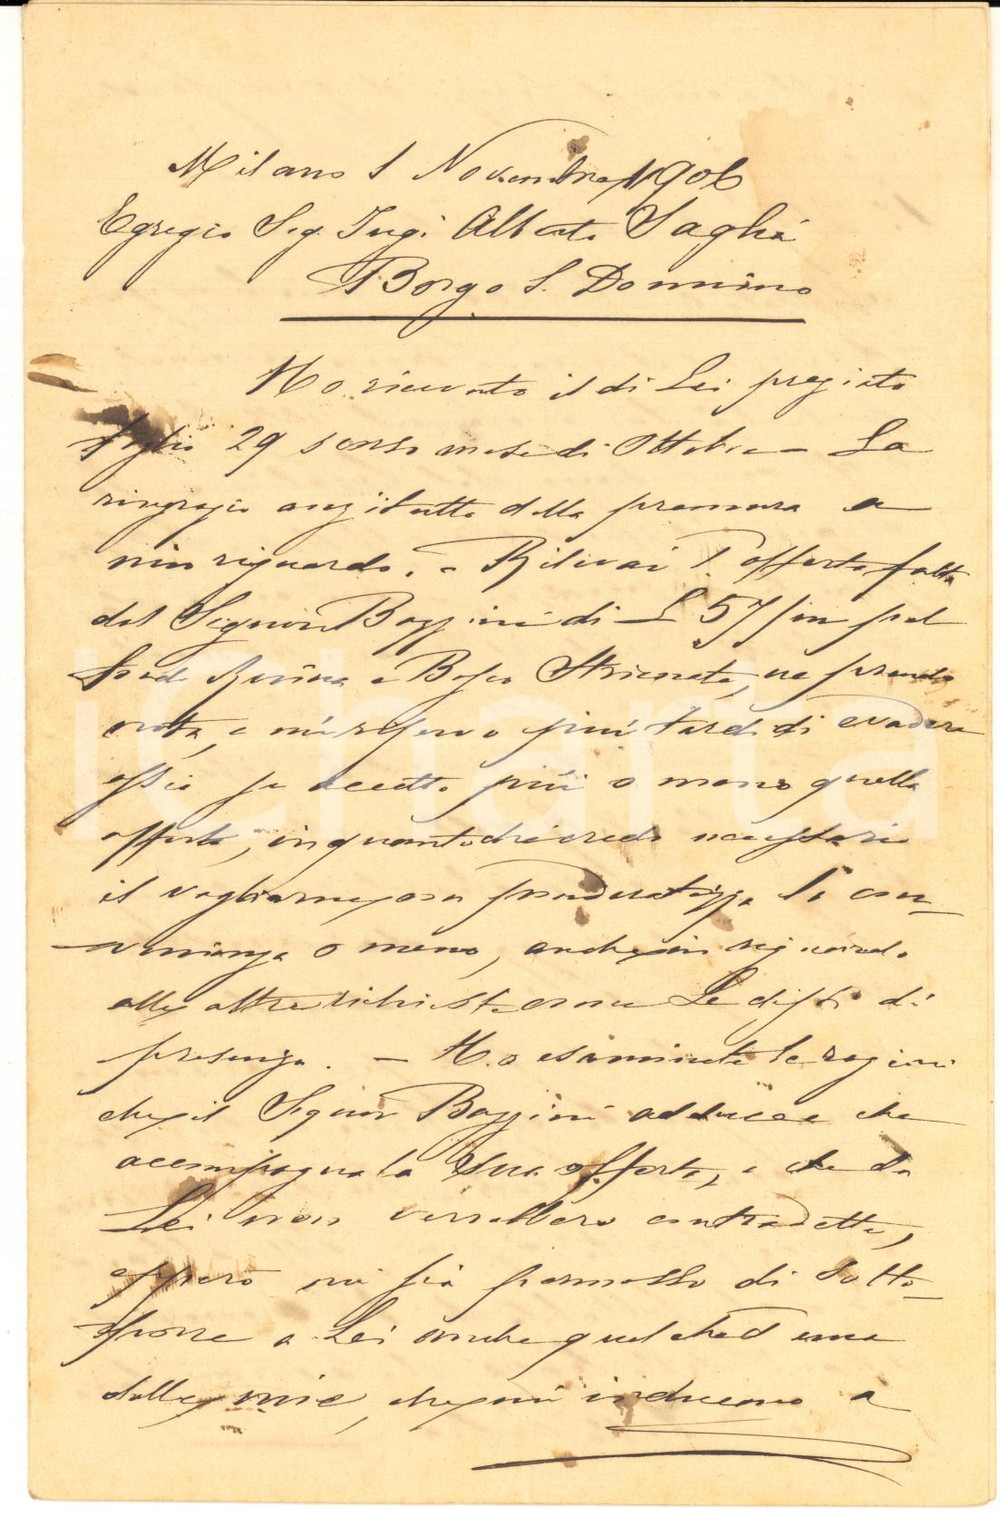 Milano 1 Novembre 1906
Egregio Sig. Ingi. Alberto Saglia
Borgo S. Donnino
Ho ricevuto il di Lei pregiato
foglio 29 scorso mese di Ottobre – La
ringrazio anzitutto della premura a
mio riguardo. – Rilevai l'offerta fatta
dal Signor Bazzini di L 57/m pel
fondo Rovina e Bosco Strienata, ne prendo
nota, e mi riservo più tardi di evadere
ossia se accetto più o meno quella
offerta, inquantoché credo necessario
il vagliarne con ponderatezza la con-
venienza o meno, anche in riguardo
alle altre richieste come Le dissi di
presenza. – Ho esaminate le ragioni
che il Signor Bazzini adduce e che
accompagna la sua offerta, e che da
Lei non verrebbero contradette,
epperò mi sia permesso di sotto-
porre a Lei anche qualched'una
delle mie, che mi inducono a